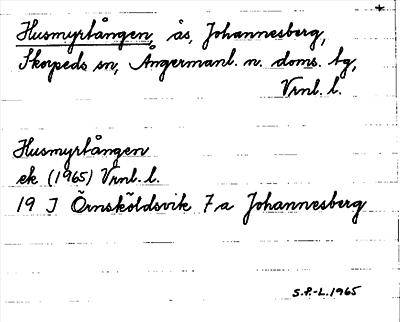 Husmyrtången, ås, Johannesberg,
Skorpeds sn, Ångermanl. n. doms. tg,
Vrnl. l.
Husmyrtången
ek (1965) Vrnl. l.
19 J Örnsköldsvik 7 a Johannesberg
S.P.-L. 1965